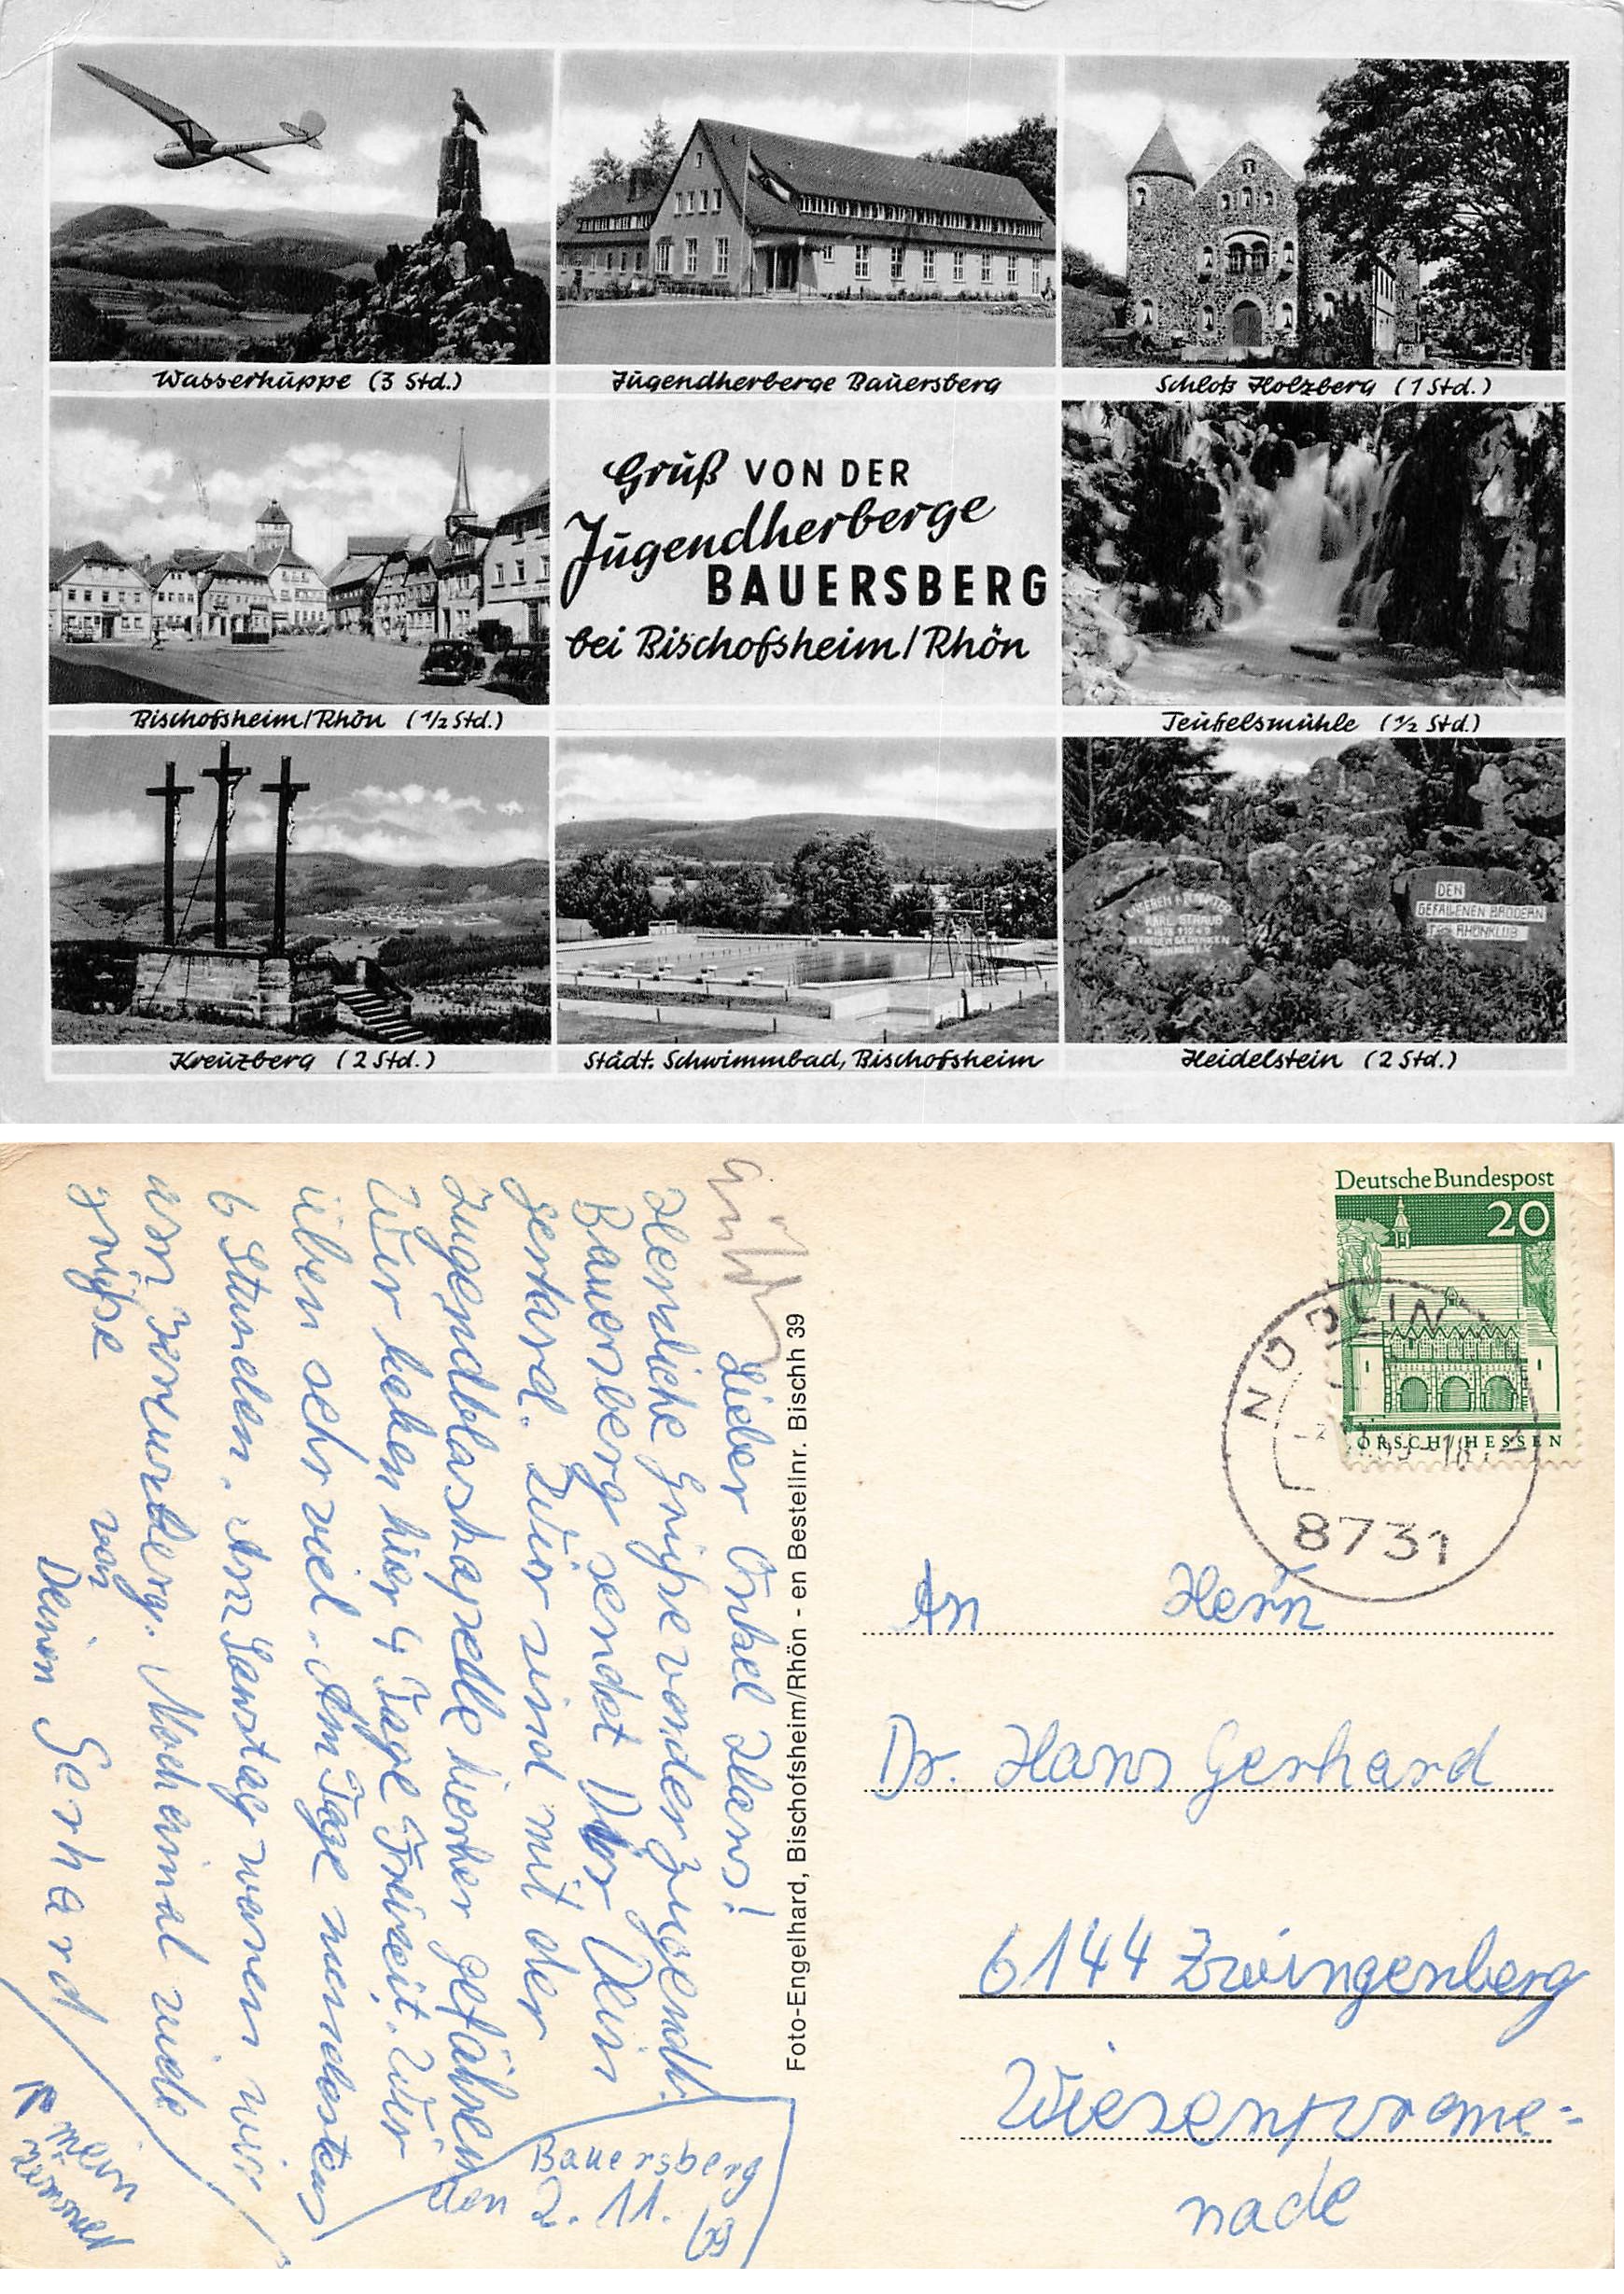 Wasserkuppe (3 Std.)
Jugendherberge Bauersberg
Schloß Holzberg (1 Std.)
Gruß VON DER
Jugendherberge
BAUERSBERG
bei Bischofsheim/Rhön
Bischofsheim/Rhön (1/2 Std.)
Teufelsmühle (1/2 Std.)
KARL STRAUB
DEN
GEFALLENEN BRÜDERN
RHÖNKLUB
Kreuzberg (2 Std.)
Städt. Schwimmbad, Bischofsheim
Heidelstein (2 Std.)
Lieber Onkel Hans!
Herzliche Grüße von der Jugendh.
Bauersberg sendet Dir Dein
Gerhard. Wir sind mit der
Jugendblaskapelle hierher gefahren
Wir haben hier 4 Tage Freizeit. Wir
üben sehr viel. Am Tage mindestens
6 Stunden. Am Samstag waren wir
am Kreuzberg. Noch einmal viele
grüße
von
Deinem Gerhard
Bauersberg
den 2. 11. 69
Foto-Engelhard, Bischofsheim/Rhön - en Bestellnr. Bischh 39
Deutsche Bundespost
20
LORSCH / HESSEN
8731
An Herrn
Dr. Hans Gerhard
6144 Zwingenberg
Wiesenprome=
nade